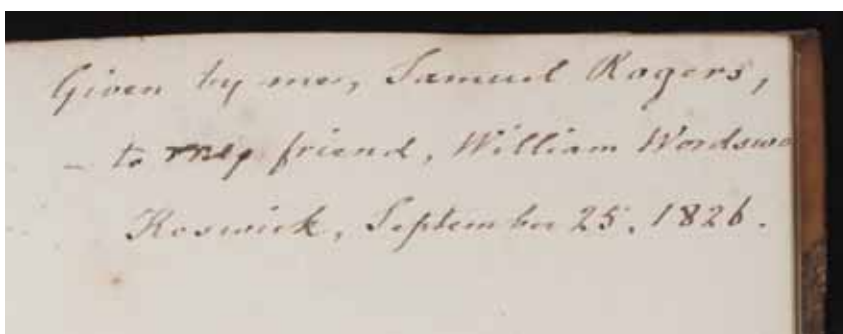 Given by me, Samuel Rogers,
– to my friend, William Wordswo
Keswick, September 25, 1826.